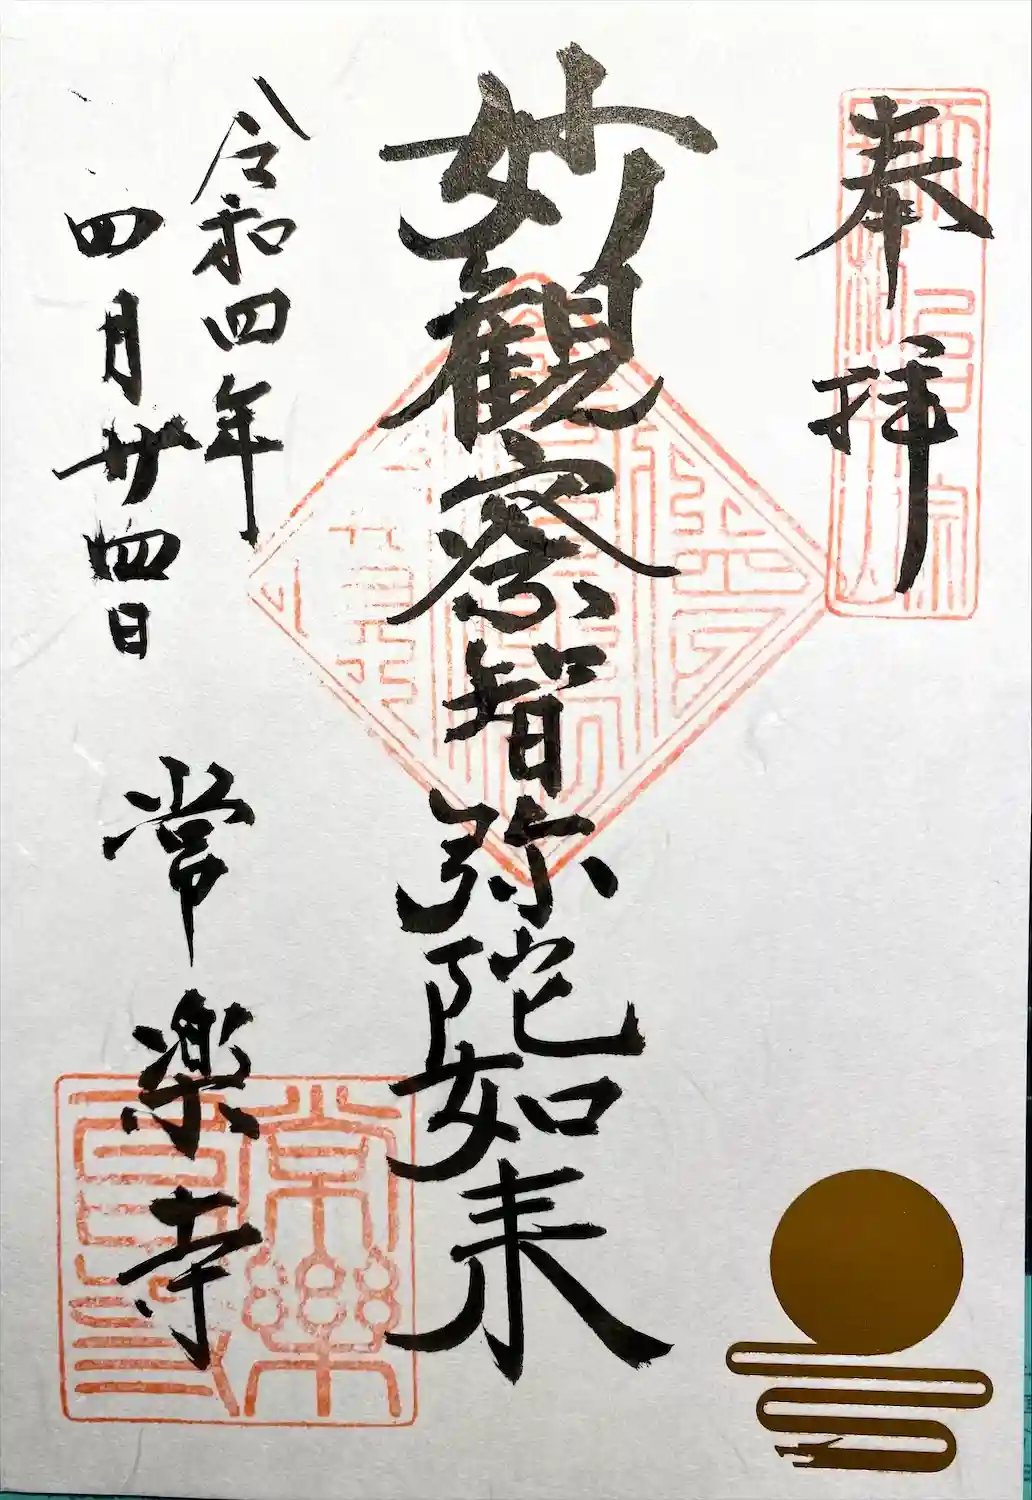 奉拝
妙観察智弥陀如来
令和四年
四月廿四日
常楽寺